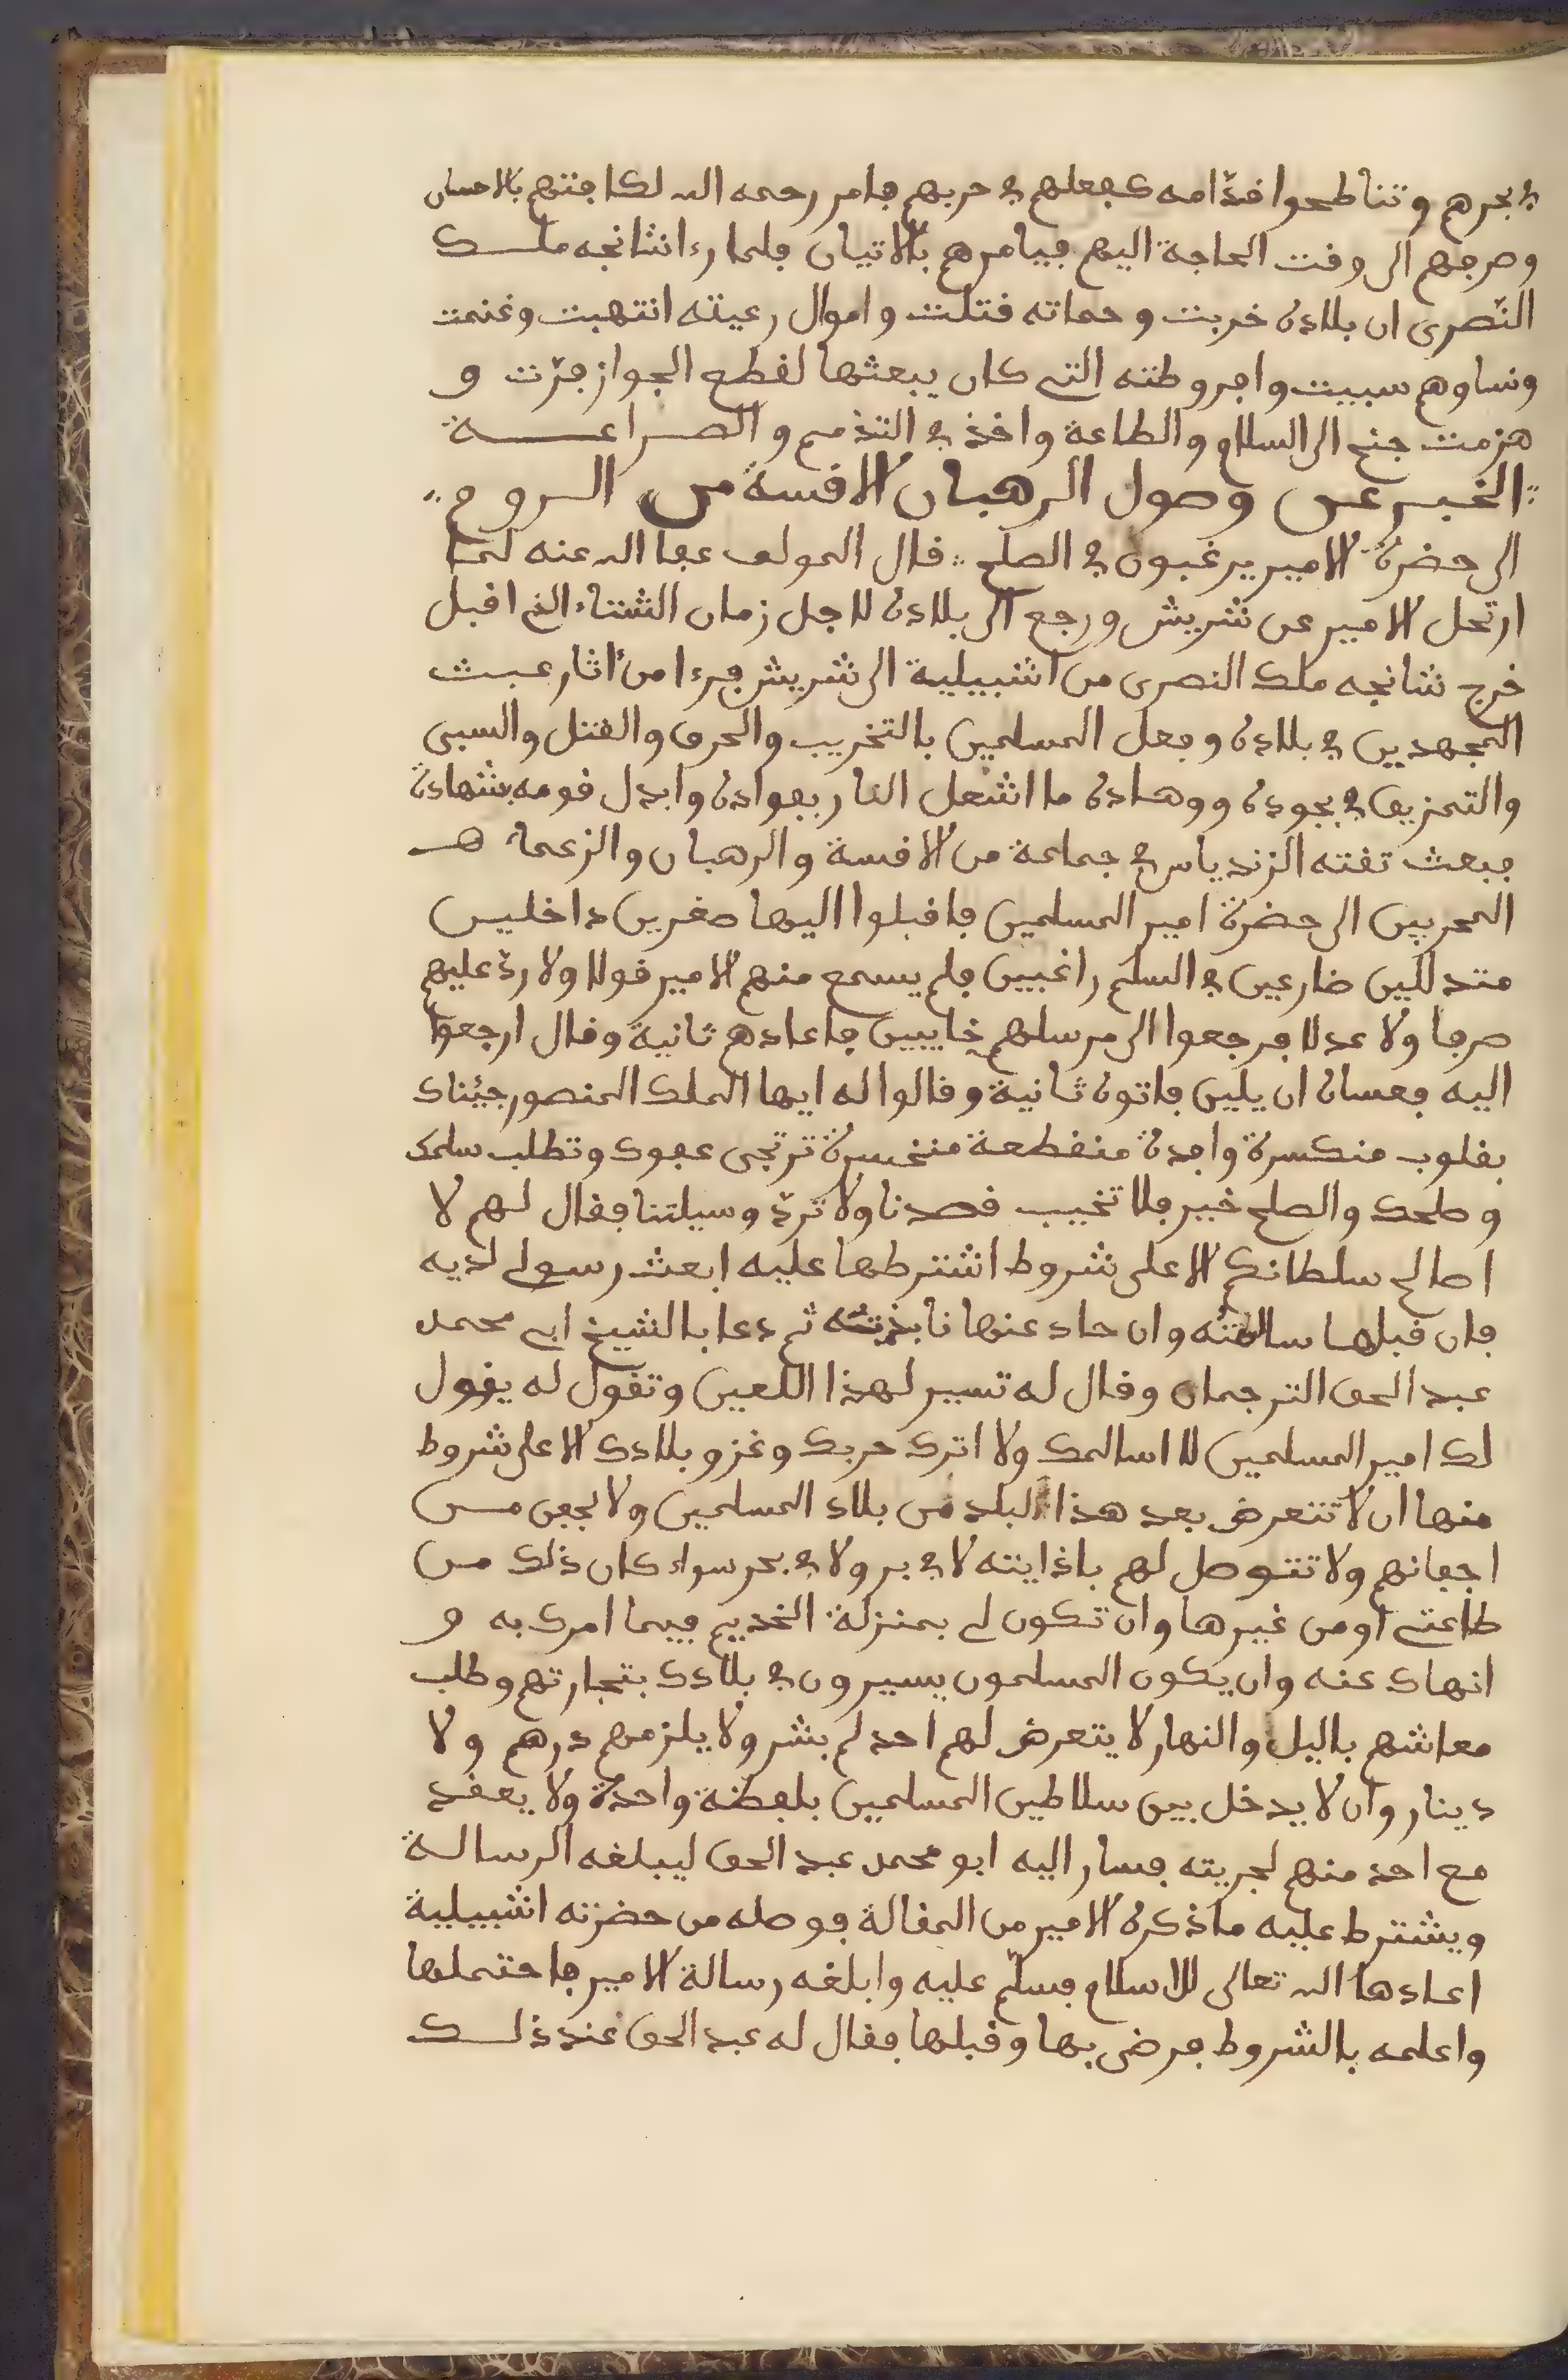 في بحرهم وتناطحوا قدّامه كفعلهم في حربهم فامر رحمه الله لكافتهم بالاحسان
وصرفهم الى وقت الحاجة اليهم فيامرهم بالاتيان فلما رءا شانجه ملك
النّصرى ان بلاده خربت وحماته قتلت واموال رعيته انتهبت وغنمت
ونساوهم سبيت واجروطته التي كان يبعثها لقطع الجواز فرّت و
هزمت جنح الى السلام والطاعة واخذ في التذمم والضراعة
الخبر عن وصول الرهبان الاقسة من الروم
الى حضرة الامير يرغبون في الصلح قال المولف عفا الله عنه لما
ارتحل الامير عن شريش ورجع الى بلاده لاجل زمان الشتاء الذي اقبل
خرج شانجه ملك النصرى من اشبيلية الى شريش فرءا من ءاثار عبث
المجهدين في بلاده وفعل المسلمين بالتخريب والحرق والقتل والسبى
والتمزيق في نجوده ووهاده ما اشعل النار بفواده وابدل قومه بشهاده
فبعث ثقته الزندياس في جماعة من الاقسة والرهبان والزعماء
المحربين الى حضرة امير المسلمين فاقبلوا اليها صغرين داخلين
متدللين ضارعين في السلم راغبين فلم يسمع منهم الامير قولا ولا ردّ عليهم
صرفا ولا عدلا فرجعوا الى مرسلهم خايبين فاعادهم ثانية وقال ارجعوا
اليه فعساه ان يلين فاتوه ثانية وقالوا له ايها الملك المنصور جيناك
بقلوب منكسرة وافدة منقطعة منخسرة ترتجى عفوك وتطلب سلمك
وصلحك والصلح خير فلا تخيب قصدنا ولا تردّ وسيلتنا فقال لهم لا
اصالح سلطانكم الا على شروط اشترطها عليه ابعث رسولي لديه
فان قبلها سالمته وان حاد عنها نابذته ثم دعا بالشيخ ابي محمد
عبد الحق الترجمان وقال له تسير لهذا اللعين وتقول له يقول
لك امير المسلمين لا اسالمك ولا اترك حربك وغزو بلادك الا على شروط
منها ان لا تتعرض بعد هذا لبلد من بلاد المسلمين ولا لجفن من
اجفانهم ولا تتوصل لهم باذايته لا في بر ولا في بحر سواء كان ذلك من
طاعتي او من غيرها وان تكون لي بمنزلة الخديم فيما امرك به و
انهاك عنه وان يكون المسلمون يسيرون في بلادك بتجارتهم وطلب
معاشهم باليل والنهار لا يتعرض لهم احد لم بشر ولا يلزمهم درهم ولا
دينار وان لا يدخل بين سلاطين المسلمين بلفظة واحدة ولا يعقد
مع احد منهم لحربته فسار اليه ابو محمد عبد الحق ليبلغه الرسالة
ويشترط عليه ما ذكره الامير من المقالة فوصله من حضرته اشبيلية
اعادها الله تعالى للاسلام فسلّم عليه وابلغه رسالة الامير فاحتملها
واعلمه بالشروط فرضى بها وقبلها فقال له عبد الحق عند ذلك